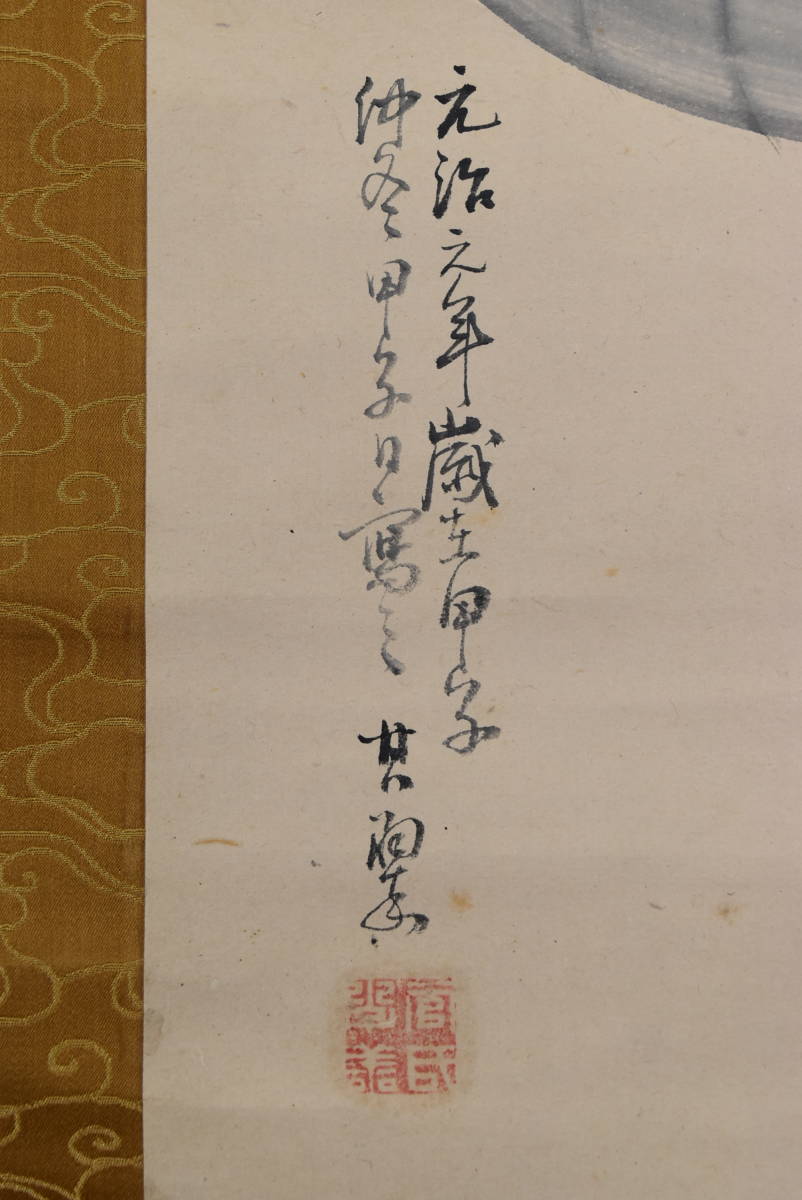 元治元年歳在甲子
仲冬甲子日寫之